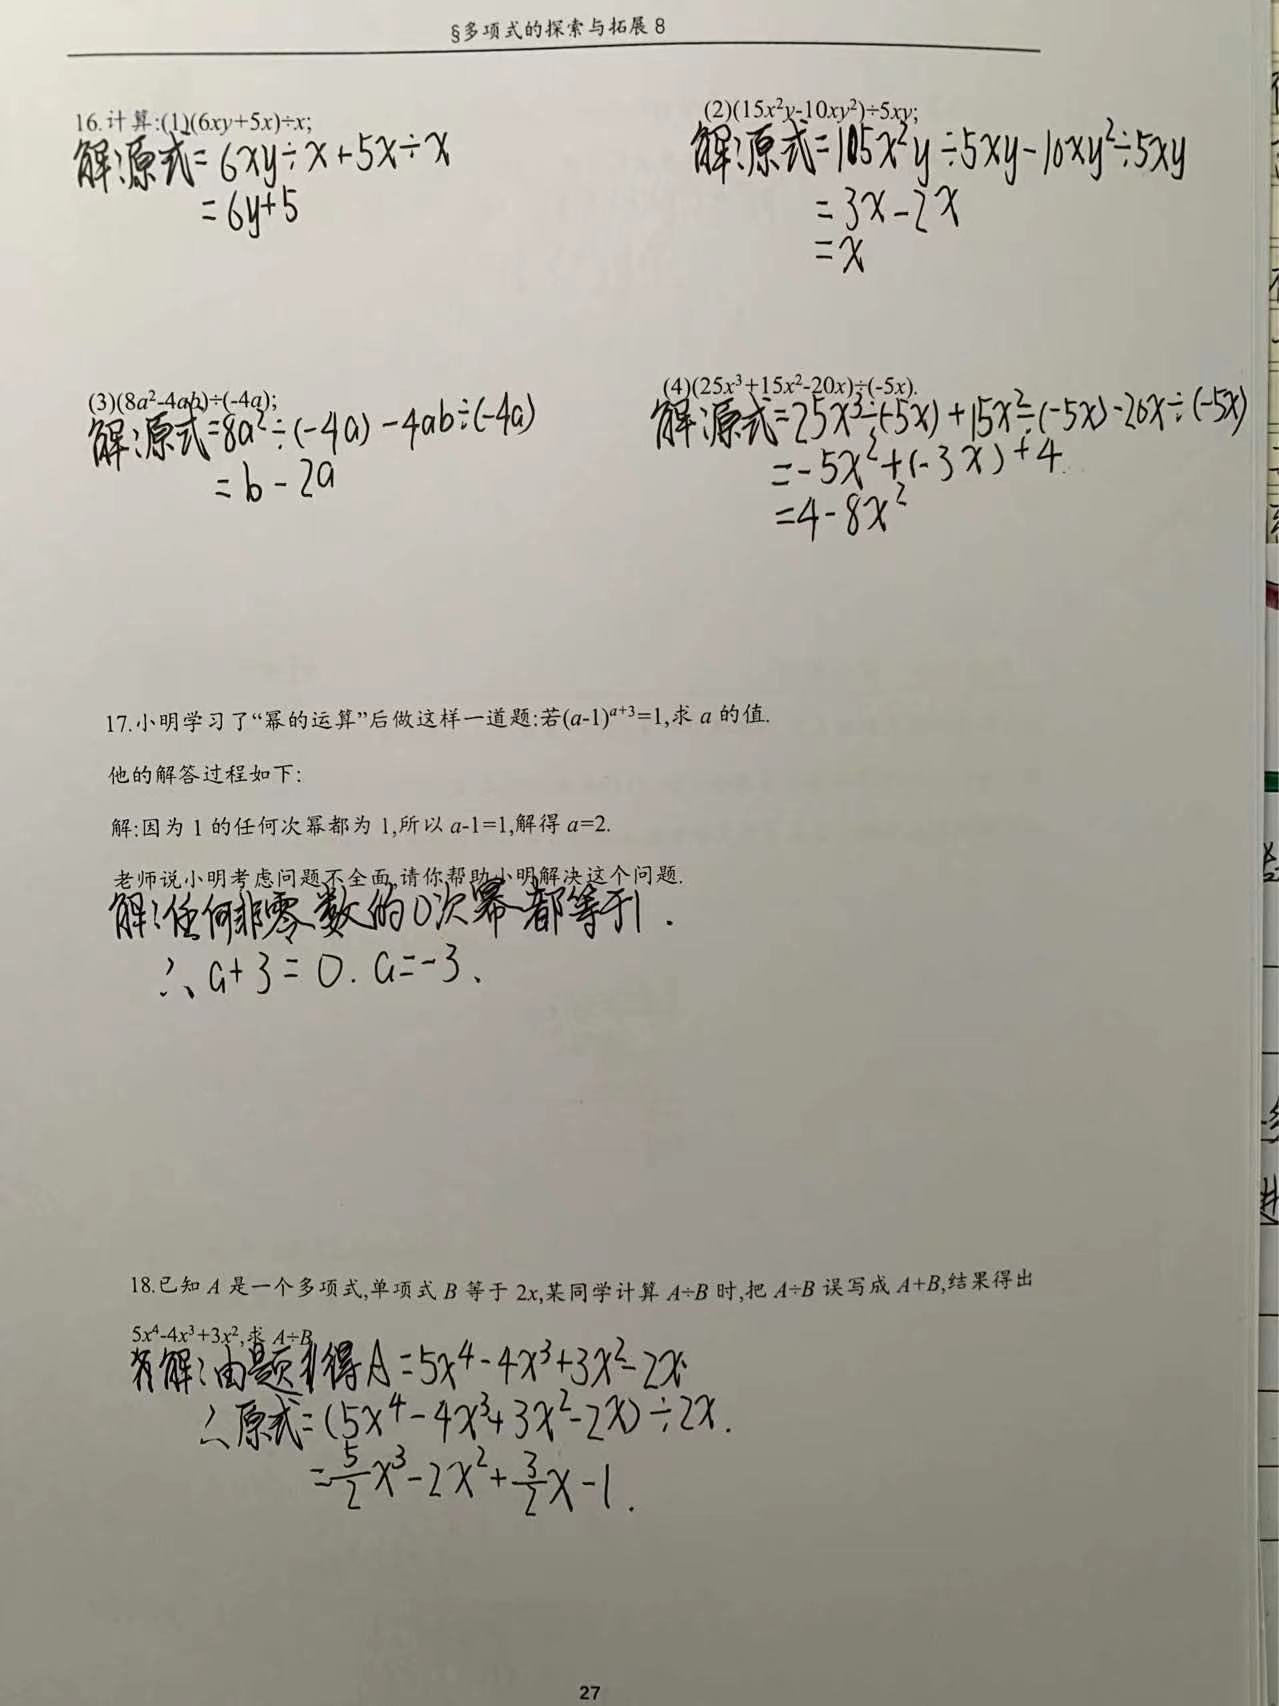 §多项式的探索与拓展 8
16.计算:(1)(6xy+5x)÷x;
解:原式=6xy÷x+5x÷x
=6y+5
(2)(15x²y-10xy²)÷5xy;
解:原式=105x²y÷5xy-10xy²÷5xy
=3x-2x
=x
(3)(8a²-4ab)÷(-4a);
解:原式=8a²÷(-4a)-4ab÷(-4a)
=b-2a
(4)(25x³+15x²-20x)÷(-5x).
解:原式=25x³÷(-5x)+15x²÷(-5x)-20x÷(-5x)
=-5x²+(-3x)+4
=4-8x²
17.小明学习了“幂的运算”后做这样一道题:若(a-1)ᵃ⁺³=1,求 a 的值.
他的解答过程如下:
解:因为 1 的任何次幂都为 1,所以 a-1=1,解得 a=2.
老师说小明考虑问题不全面,请你帮助小明解决这个问题.
解:任何非零数的0次幂都等于1.
∴a+3=0.a=-3.
18.已知 A 是一个多项式,单项式 B 等于 2x,某同学计算 A÷B 时,把 A÷B 误写成 A+B,结果得出
5x⁴-4x³+3x²,求 A÷B
解:由题得A=5x⁴-4x³+3x²-2x
∴原式=(5x⁴-4x³+3x²-2x)÷2x.
=5/2x³-2x²+3/2x-1.
27